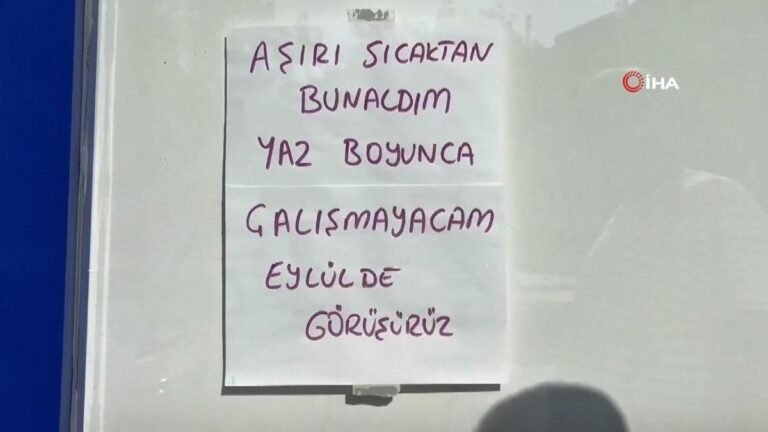 AŞIRI SICAKTAN
BUNALDIM
YAZ BOYUNCA
ÇALIŞMAYACAM
EYLÜLDE
GÖRÜŞÜRÜZ
İHA